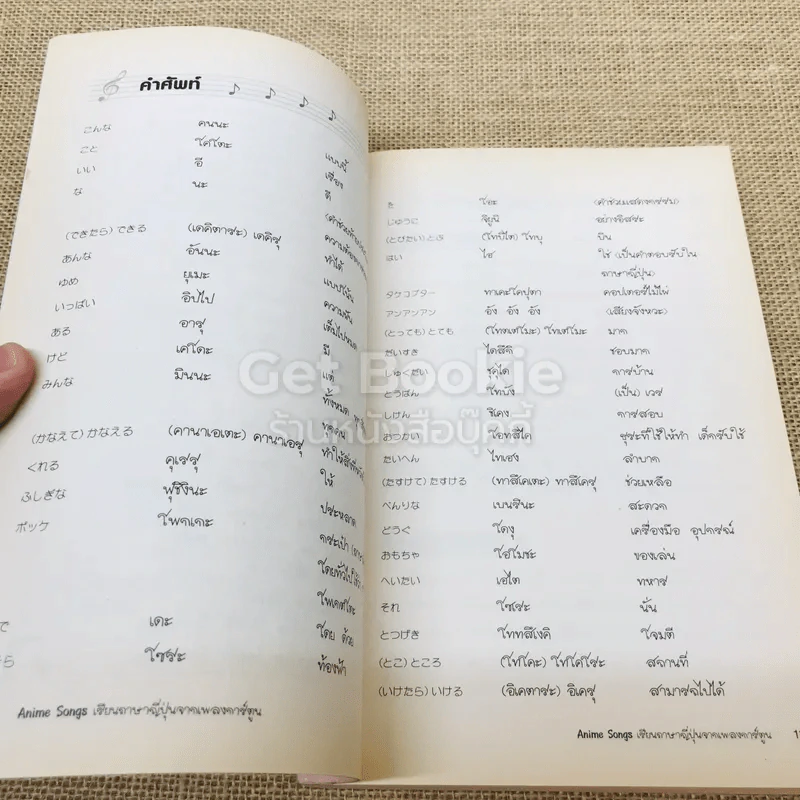 คำศัพท์
こんな คนนะ แบบนี้
こと โคโตะ เรื่อง
いい อี ดี
な นะ
(できたら) できる (เดคิตาระ) เดคิรุ ทำได้
あんな อันนะ แบบโน้น
ゆめ ยุเมะ ความฝัน
いっぱい อิปไป
ある อารุ มี
けど เคโดะ แต่
みんな มินนะ ทั้งหมด
(かなえて) かなえる (คานาเอเตะ) คานาเอรุ
くれる คุเรรุ ให้
ふしぎな ฟุชิงินะ ประหลาด
ポッケ โพคเคะ กระเป๋า
で เดะ โดย ด้วย
โซระ ท้องฟ้า
Anime Songs เรียนภาษาญี่ปุ่นจากเพลงการ์ตูน
を โอะ (คำช่วยแสดงกรรม)
じゆうに จิยูนิ อย่างอิสระ
(とびたい) とぶ (โทบิไต) โทบุ บิน
はい ไฮ ใช่ (เป็นคำตอบรับใน
ภาษาญี่ปุ่น)
タケコプター ทาเคะโคปุตา คอปเตอร์ไม้ไผ่
アンアンアン อัง อัง อัง (เสียงจังหวะ)
(とっても) とても (โทตเตโมะ) โทเตโมะ มาก
だいすき ไดสึคิ ชอบมาก
しゅくだい ชุคุได การบ้าน
とうばん โทบัง (เป็น) เวร
しけん ชิเคง การสอบ
おつかい โอทสึไค ธุระที่ใช้ให้ทำ เด็กรับใช้
たいへん ไทเฮง ลำบาก
(たすけて) たすける (ทาสึเคเตะ) ทาสึเครุ ช่วยเหลือ
べんりな เบนรินะ สะดวก
どうぐ โดงุ เครื่องมือ อุปกรณ์
おもちゃ โอโมชะ ของเล่น
へいたい เฮไต ทหาร
それ โซเระ นั่น
とつげき โททสึเงคิ โจมตี
(とこ) ところ (โทโคะ) โทโคโระ สถานที่
(いけたら) いける (อิเคตาระ) อิเครุ สามารถไปได้
Anime Songs เรียนภาษาญี่ปุ่นจากเพลงการ์ตูน
Get Bookie
ร้านหนังสือบุ๊คกี้